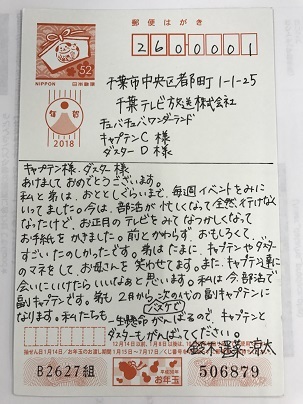 郵便はがき
52
NIPPON
日本郵便
2600001
年賀
2018
千葉市中央区都町1-1-25
千葉テレビ放送株式会社
チュバチュバワンダーランド
キャプテンC 様
ダスターD 様
キャプテン様・ダスター様
あけましておめでとうございます。
私と弟は、おととしぐらいまで、毎週イベントをみに
いってました。今は、部活が忙しくなって全然行けなく
なったけど、お正月のテレビをみてなつかしくなって
お手紙をかきました。前とかわらず、おもしろくて、
すごいたのしかったです。弟はたまに、キャプテンやダスター
のマネをして、お母さんを笑わせてます。また、キャプテン達に
会いにいけたらいいなぁと思います。私は今、部活で
副キャプテンです。弟も2月から次のんぢの副キャプテンに
なります。私たちも一生懸命(バスケ)がんばるので、キャプテンと
ダスターもがんばってください。
鈴木 涼太
B2627組
お年玉
506879